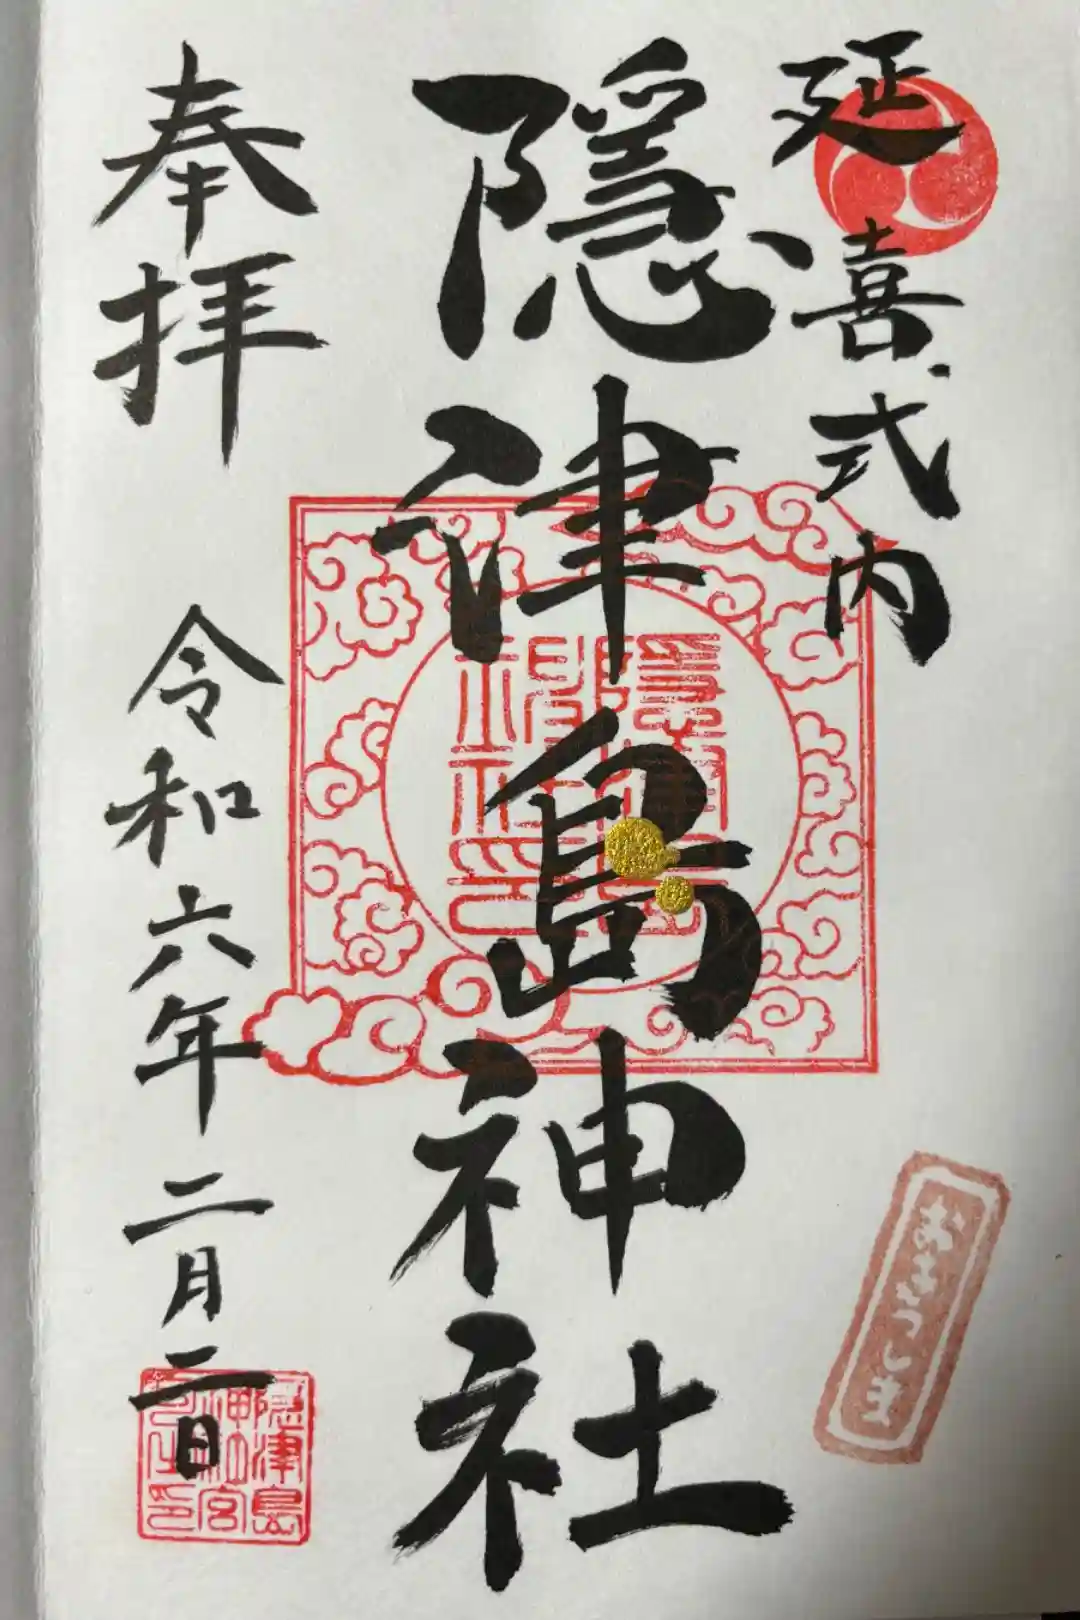 延喜式内
隱津島神社
奉拝
令和六年二月二日
おきつしま
隠津島
神社宮
司之印